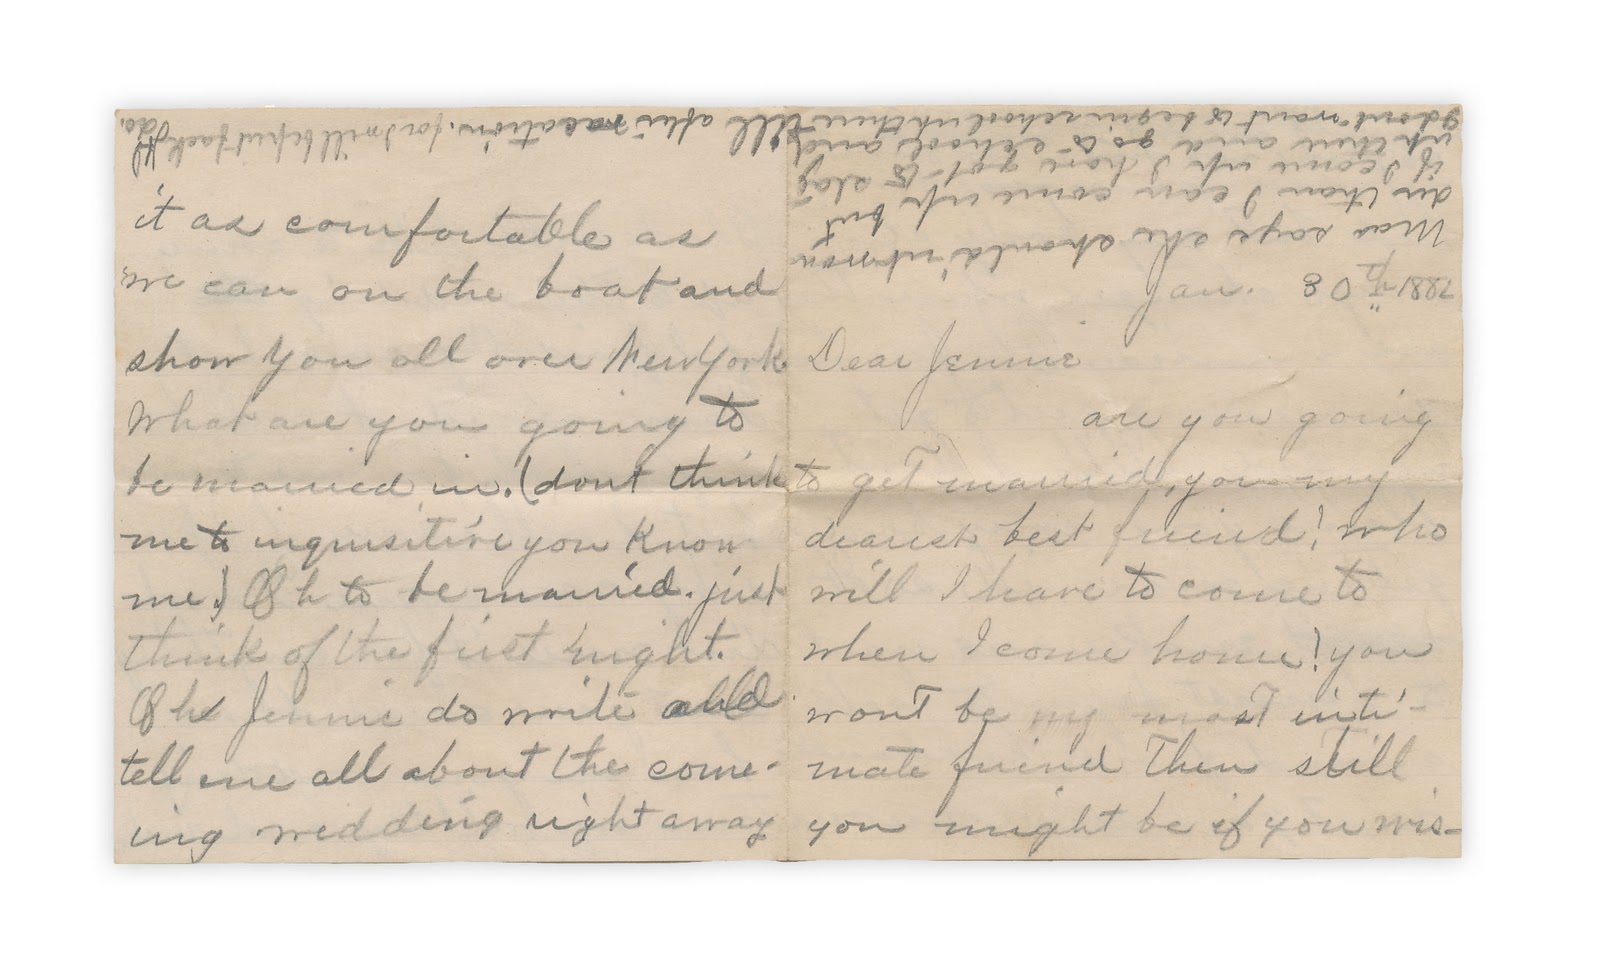 Jan. 30th 1887
Dear Jennie
are you going
to get married, you my
dearest best friend! who
will I have to come to
when I come home! you
wont be my most inti-
mate friend then still
you might be if you wis-
it as comfortable as
we can on the boat and
show you all over New York
What are you going to
be married in. (dont think
me to inquisitive you know
me.) Oh to be married. just
think of the first night.
Oh Jennie do write and
tell me all about the come-
ing wedding right away
Mar says she should'nt
if I come up I have got to stay
up there and go to school and
I dont want to begin school up there till after vacation. for I will be put back if I do.